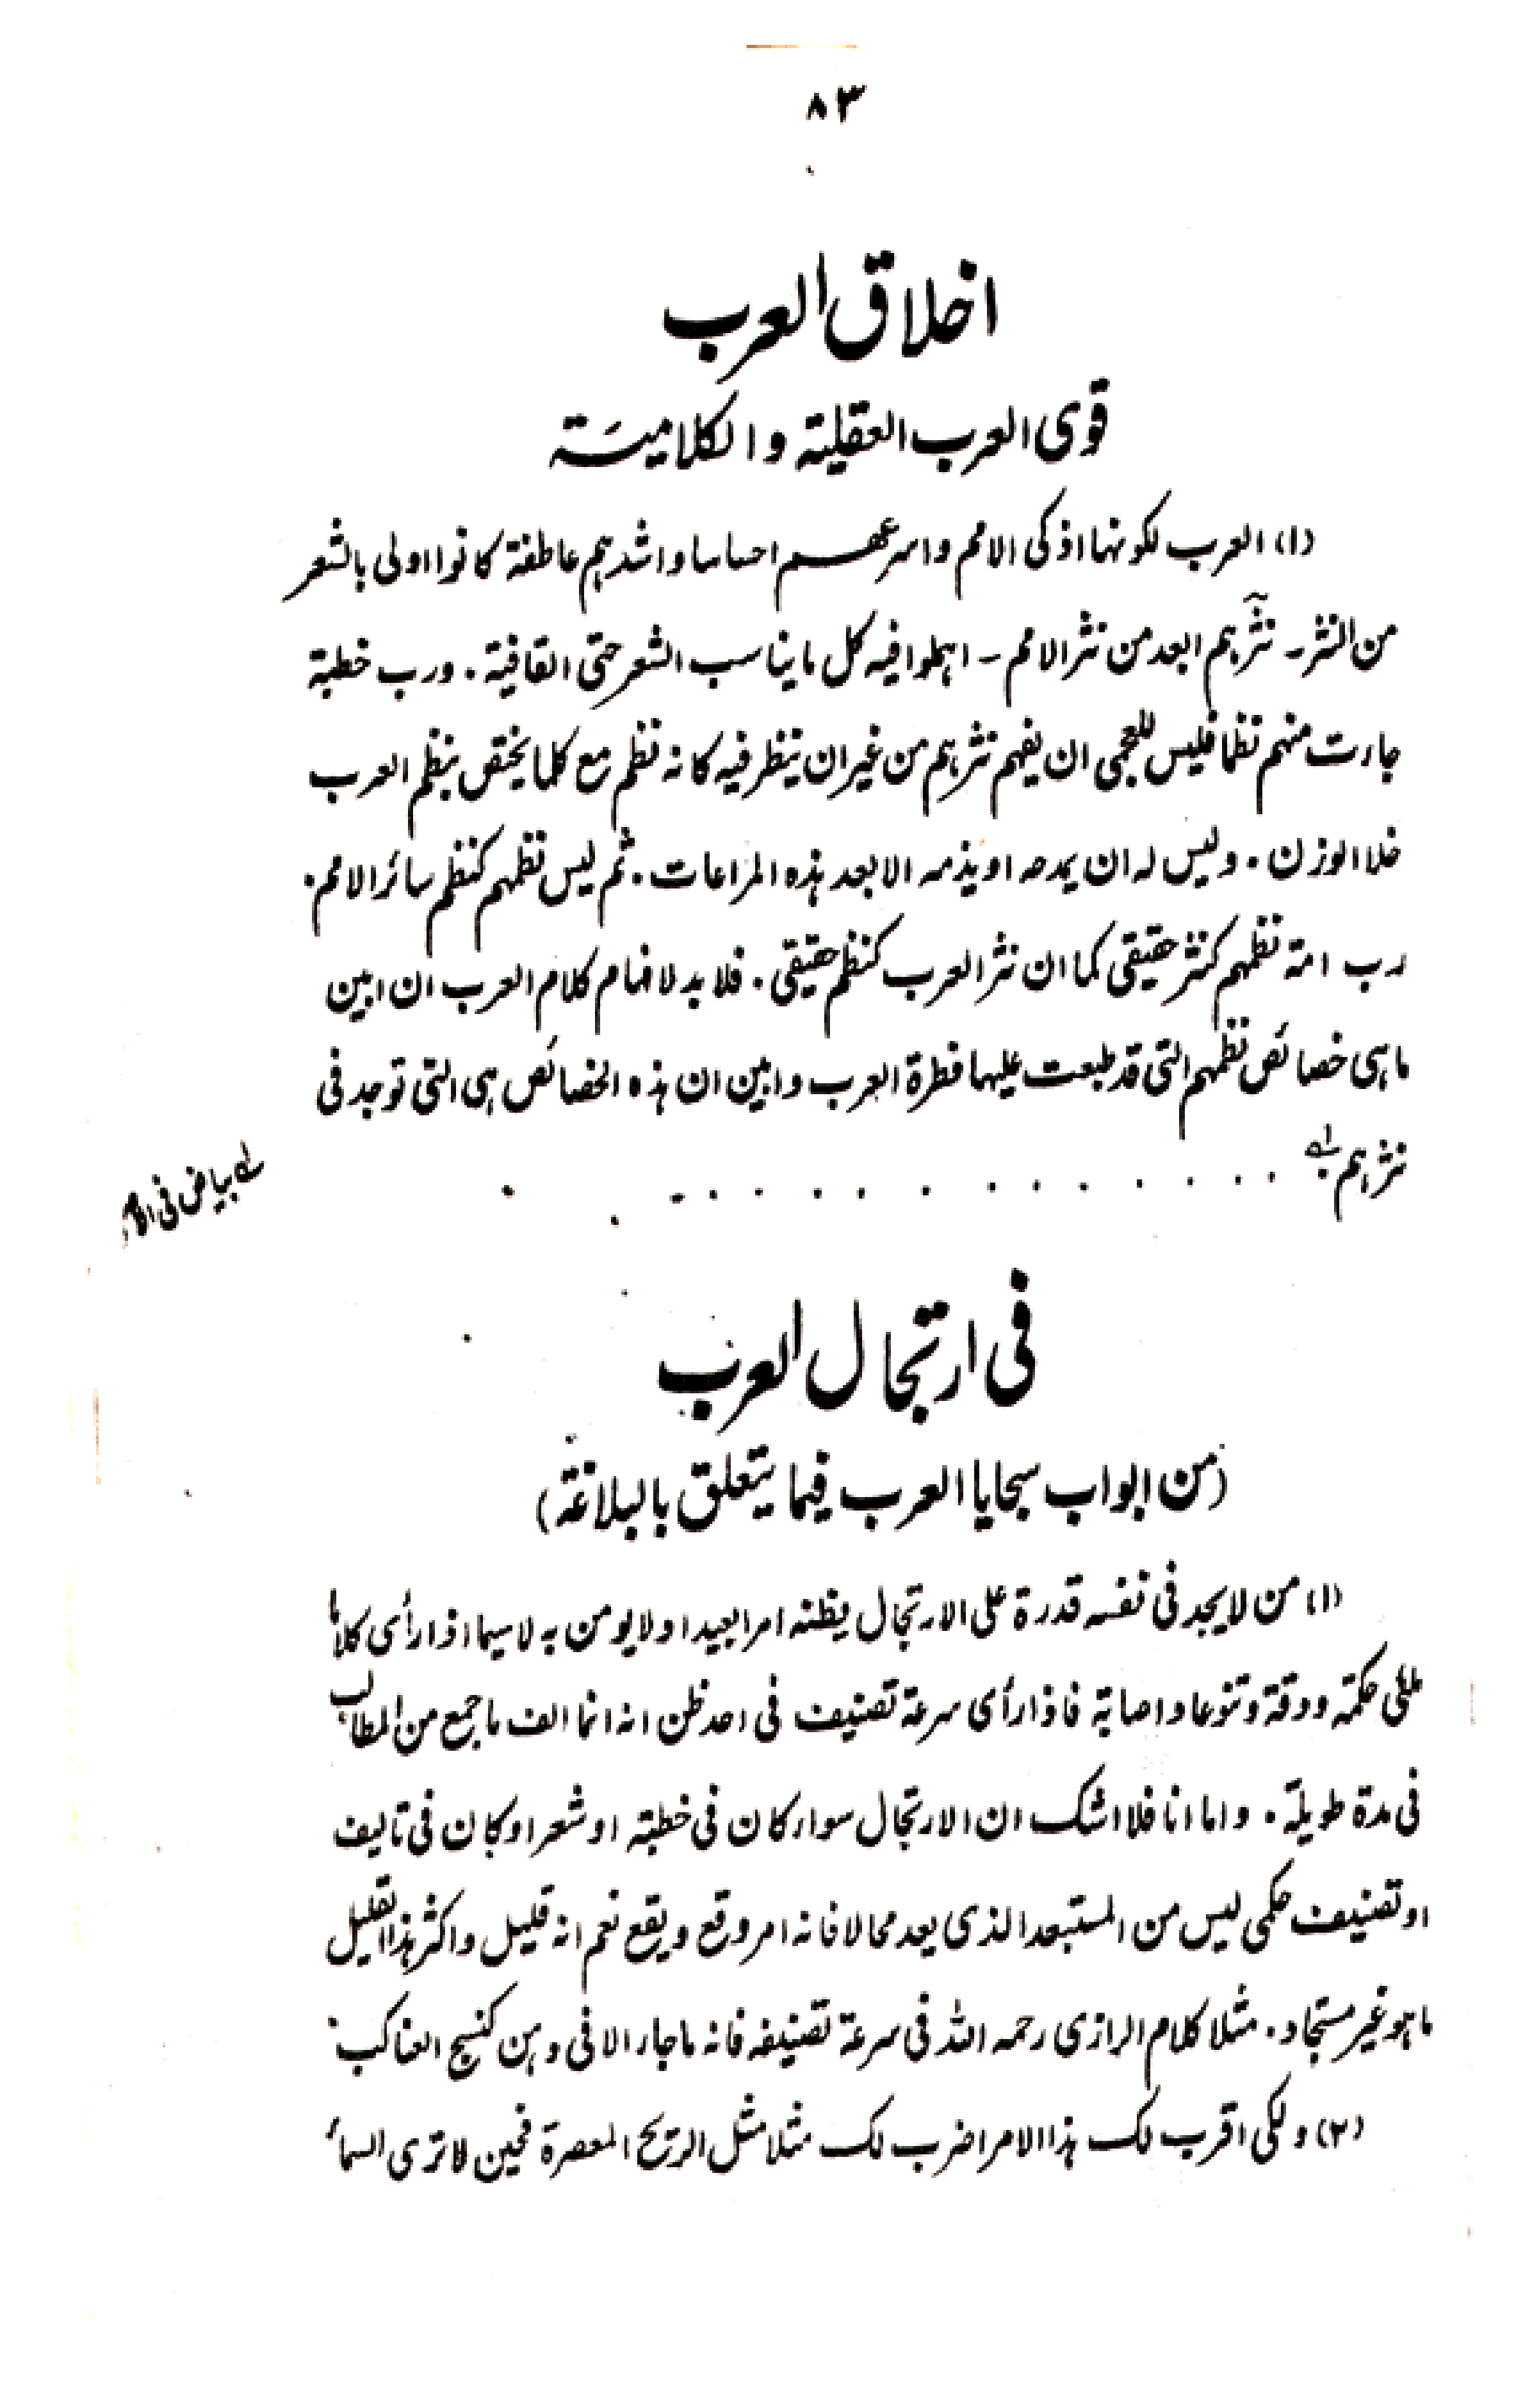 ٨٣
اخلاق العرب
قوى العرب العقلية والكلامية
(١) العرب لكونها اذكى الامم واسرعهم احساسا واشدهم عاطفة كانوا اولى بالشعر
من النثر۔ نثرهم ابعد من نثر الامم۔ اهملوا فيه كل ما يناسب الشعر حتى القافية۔ ورب خطبة
جاءت منهم نظما فليس للعجمى ان يفهم نثرهم من غير ان ينظر فيه كانه نظم مع كلما يختص بنظم العرب
خلا الوزن۔ وليس له ان يمدحه او يذمه الا بعد هذه المراعات۔ ثم ليس نظمهم كنظم سائر الامم۔
رب امة نظمهم كنثر حقيقى كما ان نثر العرب كنظم حقيقى۔ فلا بد لافهام كلام العرب ان ابين
ما هى خصائص نظمهم التى قد طبعت عليها فطرة العرب وابين ان هذه الخصائص هى التى توجد فى
نثرهم ؂ . . . . . . . . . . . . . .
؂ بياض فى
فى ارتجال العرب
(من ابواب سجايا العرب فيما يتعلق بالبلاغة)
(١) من لا يجد فى نفسه قدرة على الارتجال يظنه امرا بعيدا ولا يومن به لا سيما اذا رأى كلاماً
ملئ حكمة ودقة وتنوعا واصابة فاذا رأى سرعة تصنيف فى احد ظن انه انما الف ما جمع من المطالب
فى مدة طويلة۔ واما انا فلا اشك ان الارتجال سواء كان فى خطبة او شعر او كان فى تاليف
او تصنيف حكمى ليس من المستبعد الذى يعد محالا فانه امر وقع ويقع نعم انه قليل واكثر هذا القليل
ما هو غير مستجاد۔ مثلا كلام الرازى رحمه الله فى سرعة تصنيفه فانه ما جاء الا فى وهن كنسيج العناكب۔
(٢) ولكى اقرب لك هذا الامر اضرب لك مثلا مثل الريح المعصرة فحين لا ترى السماء